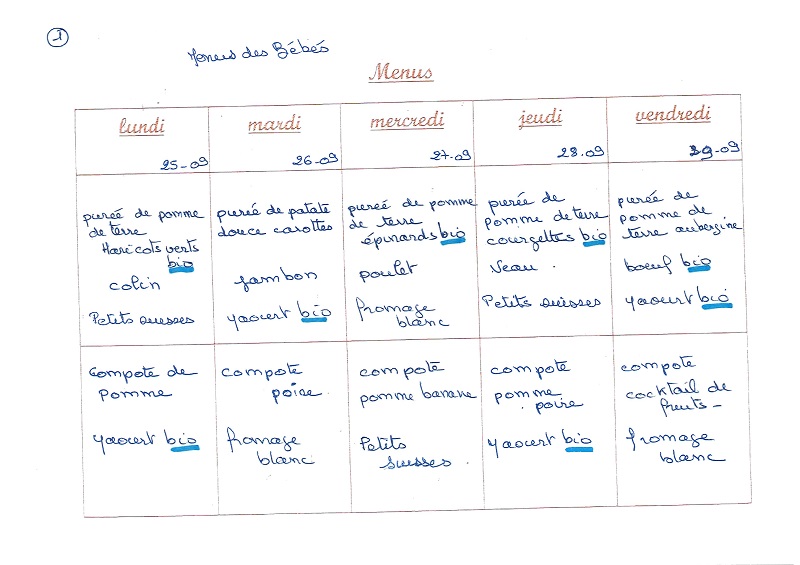 1
Menus des Bébés
Menus
lundi
25-09
mardi
26-09
mercredi
27-09
jeudi
28.09
vendredi
29-09
pureé de pomme
de terre
Haricots verts
bio
colin
Petits suisses
pureé de patate
douce carottes
Jambon
yaourt bio
pureé de pomme
de terre
épinards bio
poulet
fromage
blanc
pureé de
pomme de terre
courgettes bio
Veau .
Petits suisses
pureé de
pomme de
terre aubergine
boeuf bio
yaourt bio
Compote de
pomme
yaourt bio
compote
poire
fromage
blanc
compote
pomme banane
Petits
suisses .
compote
pomme
poire
yaourt bio
compote
cocktail de
fruits -
fromage
blanc